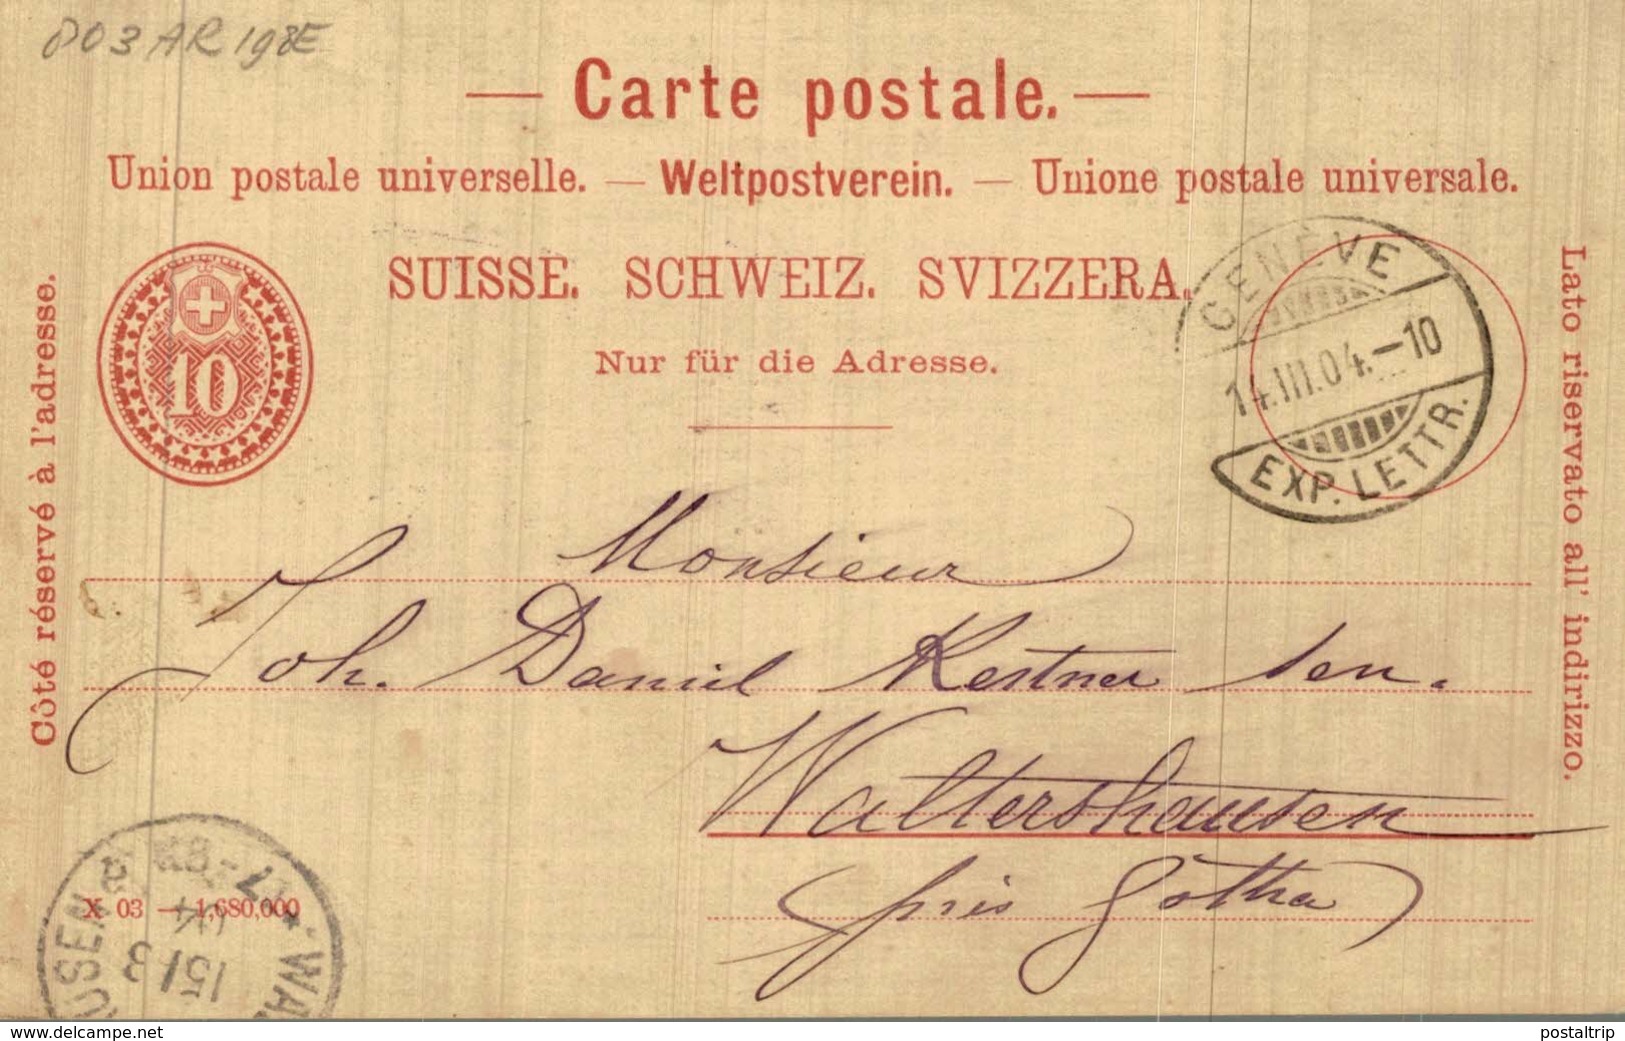 003 AR 198E
— Carte postale. —
Union postale universelle. — Weltpostverein. — Unione postale universale.
SUISSE. SCHWEIZ. SVIZZERA.
Nur für die Adresse.
10
Côté réservé à l'adresse.
Lato riservato all' indirizzo.
GENÈVE
14.III.04.–10
EXP. LETTR.
Monsieur
Joh. Daniel Kestner sen.
Waltershausen
(près Gotha)
X 03 — 1,680,000
15/3
postaltrip.delcampe.net
postaltrip